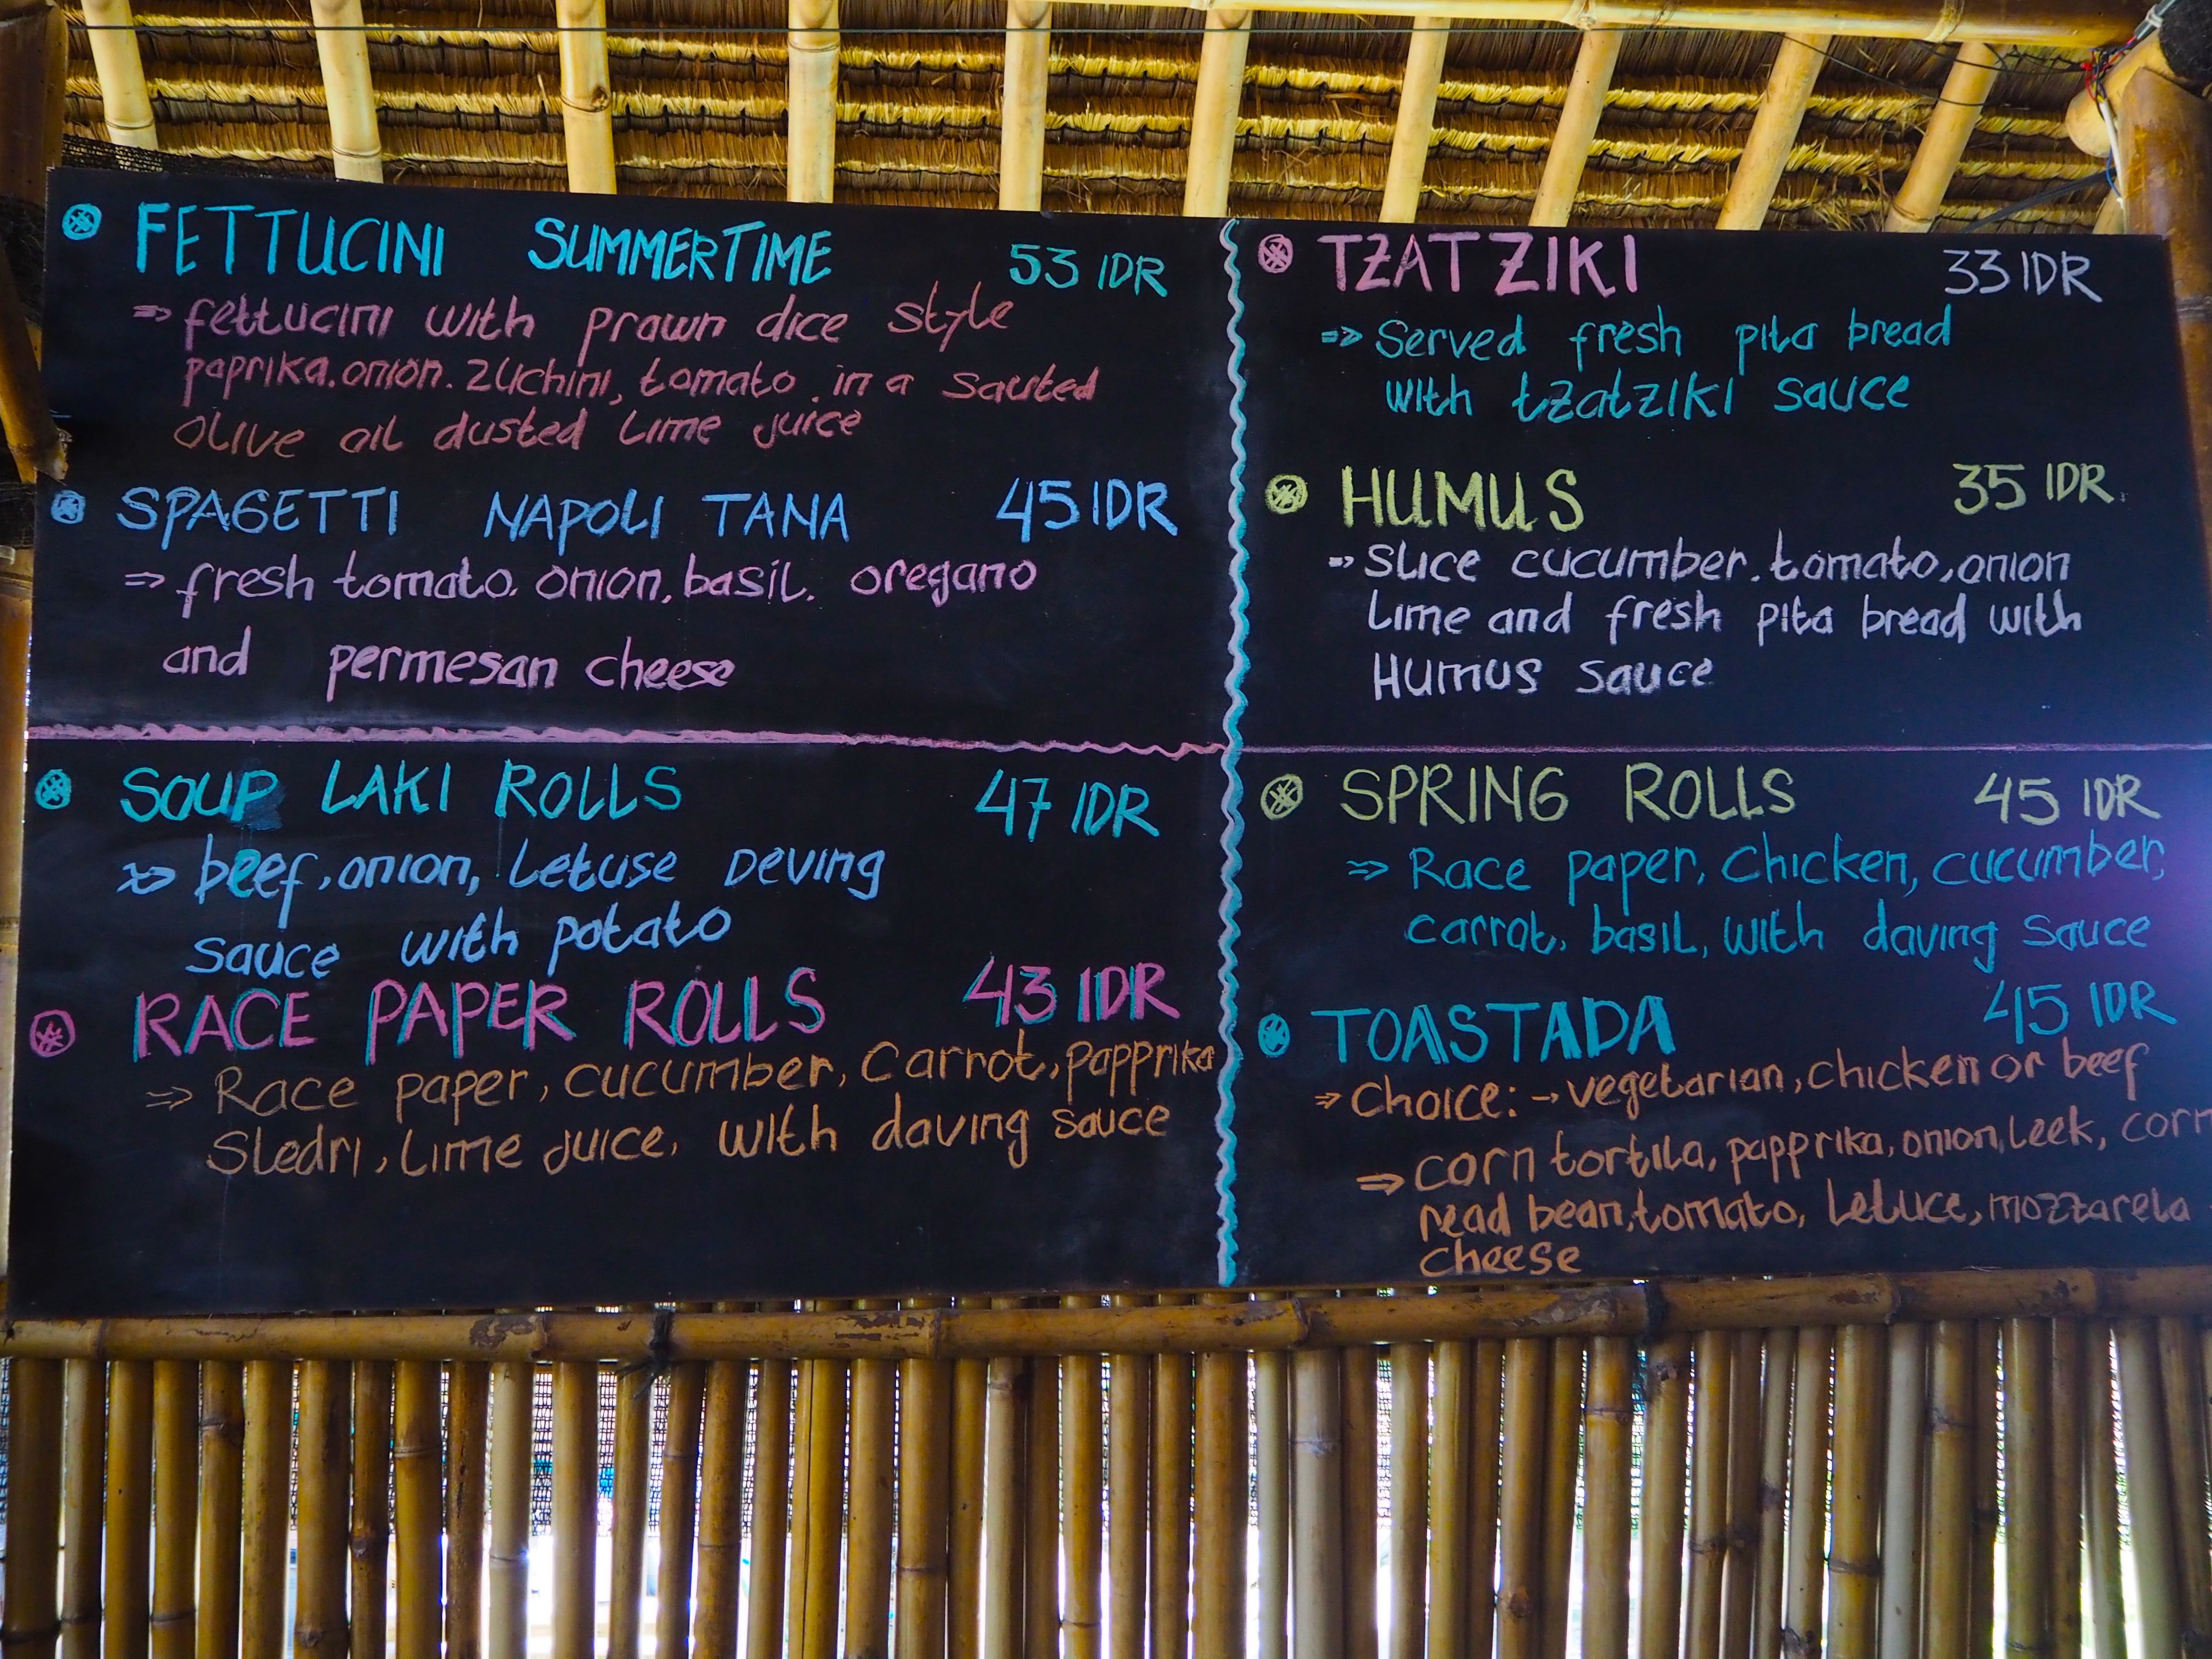 FETTUCINI SUMMERTIME 53 IDR
⇒ fettucini with prawn dice style
paprika. onion. zuchini, tomato. in a sauted
olive oil dusted lime juice
SPAGETTI NAPOLI TANA 45 IDR
⇒ fresh tomato. onion. basil. oregano
and permesan cheese
SOUP LAKI ROLLS 47 IDR
⇒ beef, onion, letuse Deving
sauce with potato
RACE PAPER ROLLS 43 IDR
⇒ Race paper, cucumber, carrot, papprika
Sledri, lime juice, with daving sauce
TZATZIKI 33 IDR
⇒ Served fresh pita bread
with tzatziki sauce
HUMUS 35 IDR
⇒ slice cucumber. tomato, onion
lime and fresh pita bread with
Humus sauce
SPRING ROLLS 45 IDR
⇒ Race paper, chicken, cucumber,
carrot, basil, with daving sauce
TOASTADA 45 IDR
⇒ choice: → vegetarian, chicken or beef
⇒ corn tortila, papprika, onion, leek, corn
read bean, tomato, letuce, mozzarela
cheese